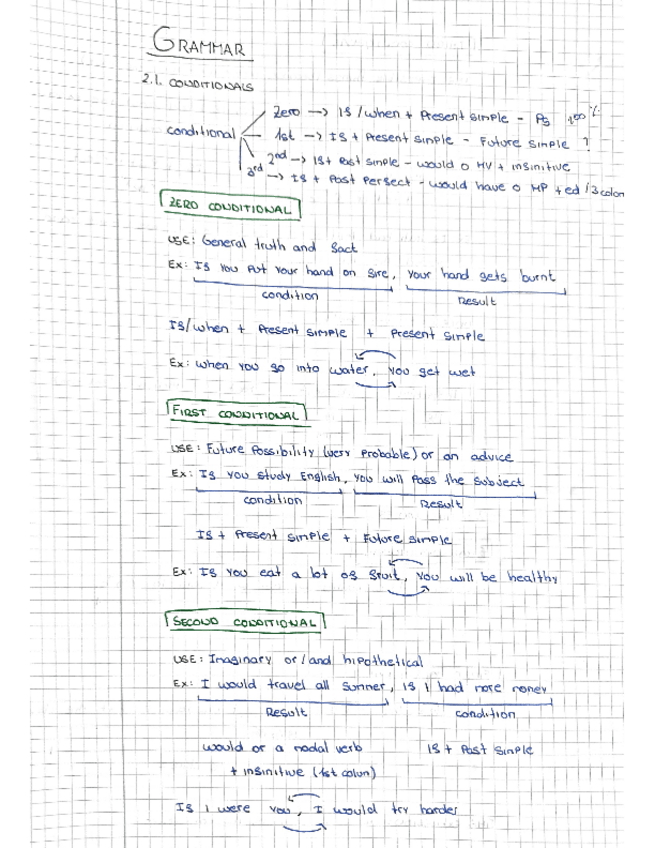 GRAMMAR
2.1. CONDITIONALS
conditional
Zero → If/when + Present simple - PS 100%
1st → If + Present simple - Future simple ?
2nd → If + Past simple - would o MV + infinitive
3rd → If + Past Perfect - would have o MP + ed / 3 colon
ZERO CONDITIONAL
USE: General truth and fact
Ex: If you put your hand on fire, your hand gets burnt
condition Result
If/when + Present simple + Present simple
Ex: when you go into water, you get wet
FIRST CONDITIONAL
USE: Future Possibility (very probable) or an advice
Ex: If you study English, you will pass the subject
condition Result
If + Present simple + Future simple
Ex: If you eat a lot of fruit, you will be healthy
SECOND CONDITIONAL
USE: Imaginary or/and hipothetical
Ex: I would travel all summer, if I had more money
Result condition
would or a modal verb If + Past simple
+ infinitive (1st colun)
If I were you, I would try harder